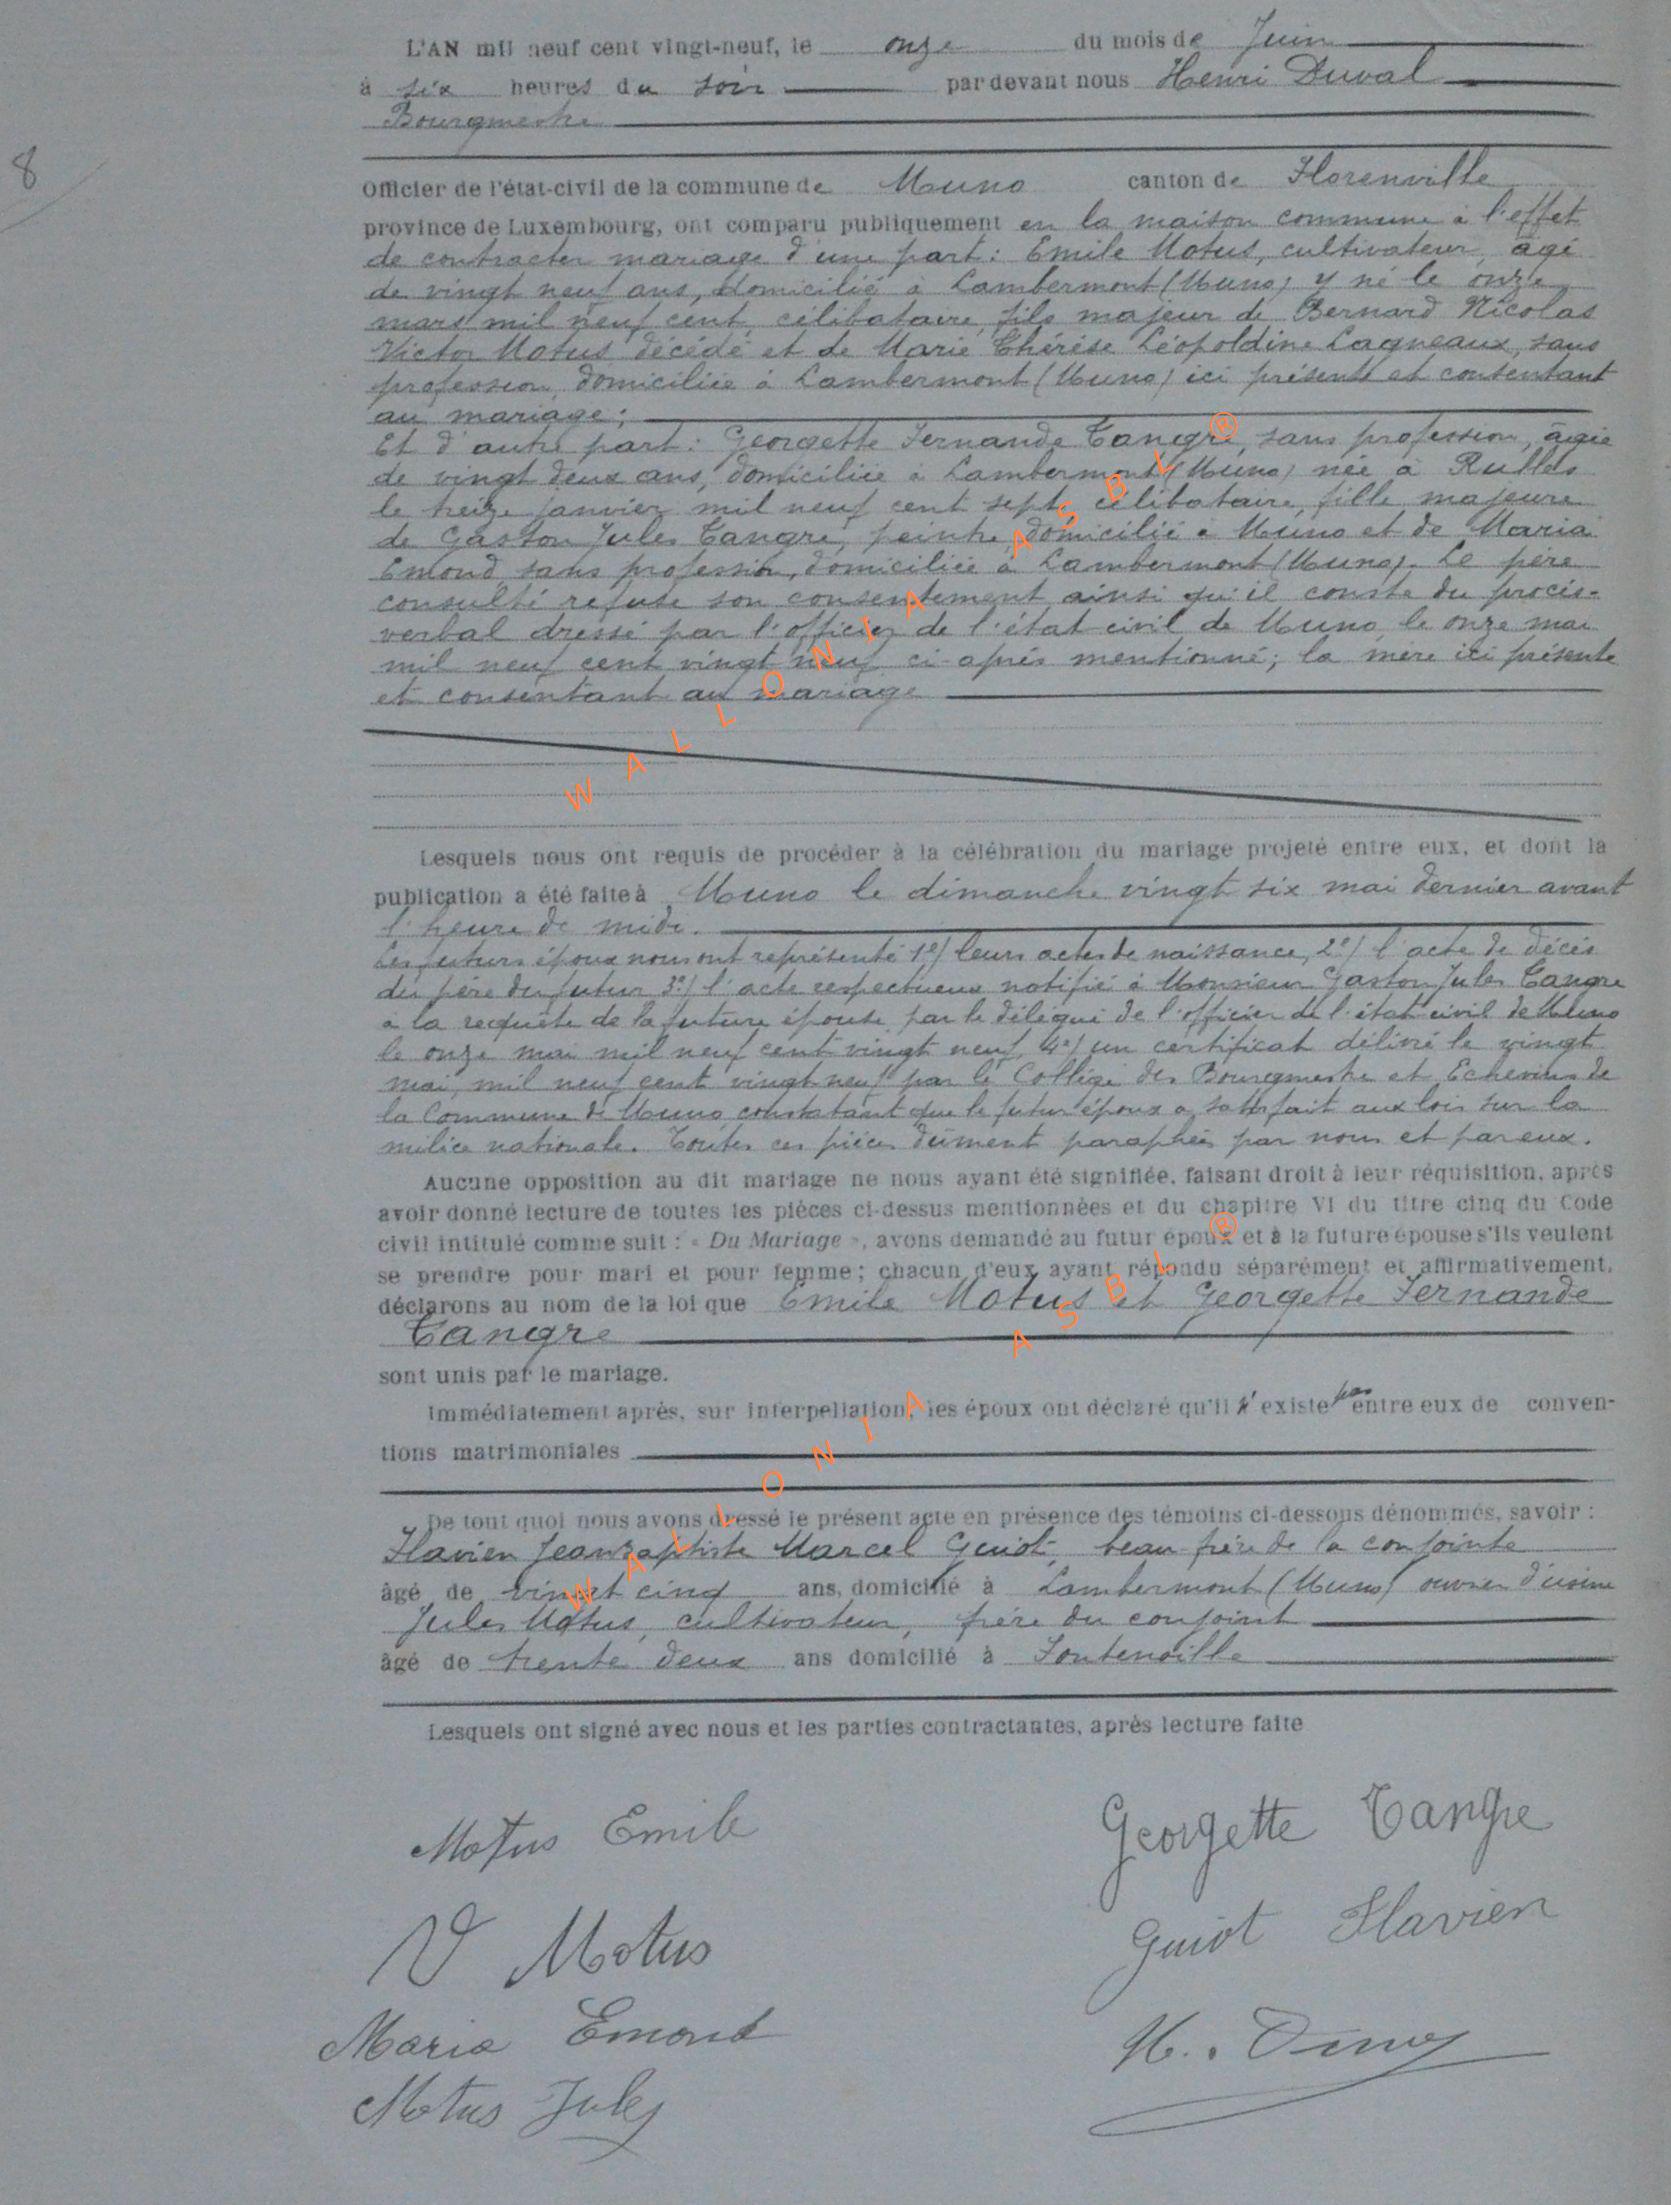 8
L'AN mil neuf cent vingt-neuf, le onze du mois de Juin
à six heures du soir par devant nous Henri Duval
Bourgmestre
Officier de l'état-civil de la commune de Muno canton de Florenville
province de Luxembourg, ont comparu publiquement en la maison commune à l'effet
de contracter mariage d'une part : Emile Motus, cultivateur, âgé
de vingt neuf ans, domicilié à Lambermont (Muno) y né le onze
mars mil neuf cent, célibataire, fils majeur de Bernard Nicolas
Victor Motus décédé et de Marie Thérèse Léopoldine Lagneaux, sans
profession, domiciliée à Lambermont (Muno) ici présente et consentant
au mariage ;
Et d'autre part : Georgette Fernande Tangre, sans profession, âgée
de vingt deux ans, domiciliée à Lambermont (Muno) née à Rulles
le treize janvier mil neuf cent sept, célibataire, fille majeure
de Gaston Jules Tangre, peintre, domicilié à Muno et de Maria
Emond, sans profession, domiciliée à Lambermont (Muno). Le père
consulté refuse son consentement ainsi qu'il conste du procès-
verbal dressé par l'officier de l'état civil de Muno le onze mai
mil neuf cent vingt neuf ci-après mentionné ; la mère ici présente
et consentant au mariage
Lesquels nous ont requis de procéder à la célébration du mariage projeté entre eux, et dont la
publication a été faite à Muno le dimanche vingt six mai dernier avant
l'heure de midi.
Les futurs époux nous ont représenté 1°/ leurs actes de naissance, 2°/ l'acte de décès
du père du futur 3°/ l'acte respectueux notifié à Monsieur Gaston Jules Tangre
à la requête de la future épouse par le délégué de l'officier de l'état civil de Muno
le onze mai mil neuf cent vingt neuf, 4°/ un certificat délivré le vingt
mai, mil neuf cent vingt neuf par le Collège des Bourgmestre et Echevins de
la Commune de Muno constatant que le futur époux a satisfait aux lois sur la
milice nationale. Toutes ces pièces dûment paraphées par nous et par eux.
Aucune opposition au dit mariage ne nous ayant été signifiée, faisant droit à leur réquisition, après
avoir donné lecture de toutes les pièces ci-dessus mentionnées et du chapitre VI du titre cinq du Code
civil intitulé comme suit : « Du Mariage », avons demandé au futur époux et à la future épouse s'ils veulent
se prendre pour mari et pour femme ; chacun d'eux ayant répondu séparément et affirmativement,
déclarons au nom de la loi que Emile Motus et Georgette Fernande
Tangre
sont unis par le mariage.
Immédiatement après, sur interpellation, les époux ont déclaré qu'il n'existe pas entre eux de conven-
tions matrimoniales
De tout quoi nous avons dressé le présent acte en présence des témoins ci-dessous dénommés, savoir :
Flavien Jean Baptiste Marcel Guiot, beau-frère de la conjointe
âgé de vingt cinq ans, domicilié à Lambermont (Muno) ouvrier d'usine
Jules Motus, cultivateur, frère du conjoint
âgé de trente deux ans domicilié à Fontenoille
Lesquels ont signé avec nous et les parties contractantes, après lecture faite
Motus Emile Georgette Tangre
V Motus Guiot Flavien
Maria Emond
Motus Jules
WALLONIA ASBL ®
WALLONIA ASBL ®